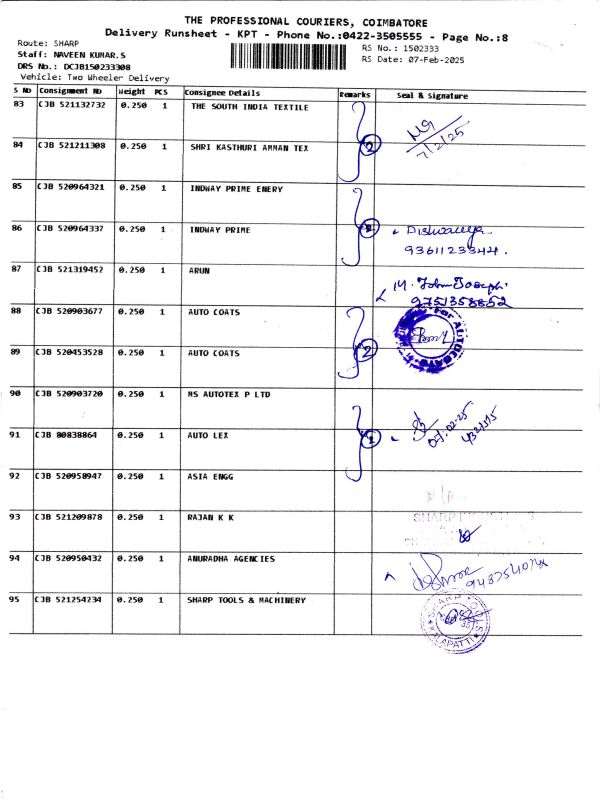 THE PROFESSIONAL COURIERS, COIMBATORE
Delivery Runsheet - KPT - Phone No.:0422-3505555 - Page No.:8
Route: SHARP
RS No.: 1502333
Staff: NAVEEN KUMAR.S
RS Date: 07-Feb-2025
DRS No.: DCJB150233308
Vehicle: Two Wheeler Delivery
S No Consignment No Weight PCS Consignee Details Remarks Seal & Signature
83 CJB 521132732 0.250 1 THE SOUTH INDIA TEXTILE
7/2/25
84 CJB 521211308 0.250 1 SHRI KASTHURI AMMAN TEX 2
85 CJB 520964321 0.250 1 INDWAY PRIME ENERY
86 CJB 520964337 0.250 1 INDWAY PRIME 2
87 CJB 521319452 0.250 1 ARUN
M. John Joseph.
9751358852
88 CJB 520903677 0.250 1 AUTO COATS
For AUTOCOATS
89 CJB 520453528 0.250 1 AUTO COATS 2
90 CJB 520903720 0.250 1 MS AUTOTEX P LTD
07.02.25
91 CJB 80838864 0.250 1 AUTO LEX 2
92 CJB 520958947 0.250 1 ASIA ENGG
93 CJB 521209878 0.250 1 RAJAN K K
SHARP
94 CJB 520950432 0.250 1 ANURADHA AGENCIES
95 CJB 521254234 0.250 1 SHARP TOOLS & MACHINERY
SHARP TOOLS